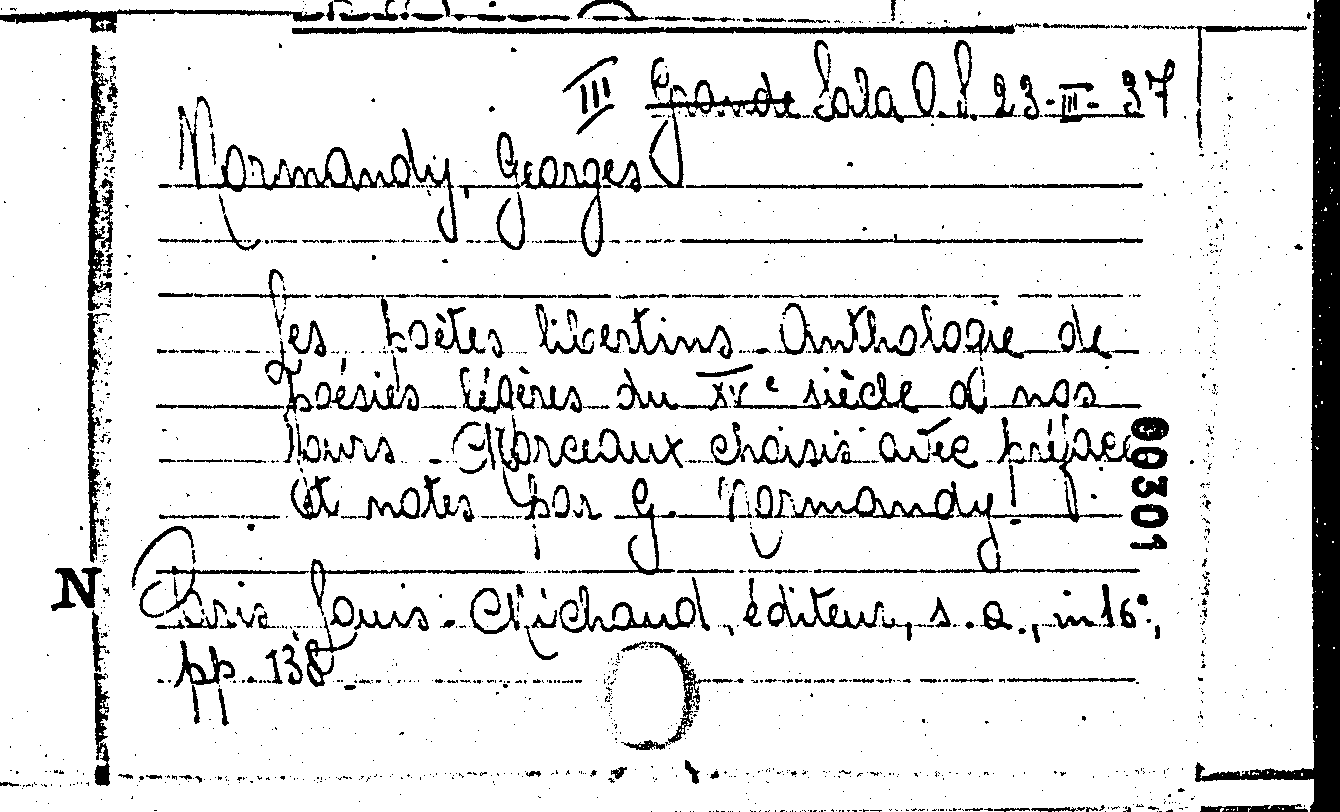 III Grande Sala O. S. 23-III-37
Normandy, Georges
Les poètes libertins. Anthologie de
poésies légères du XVe siècle à nos
jours. Morceaux choisis avec préface
et notes par G. Normandy.
Paris Louis-Michaud, éditeur, s.a., in 16°,
pp. 138
00301
N